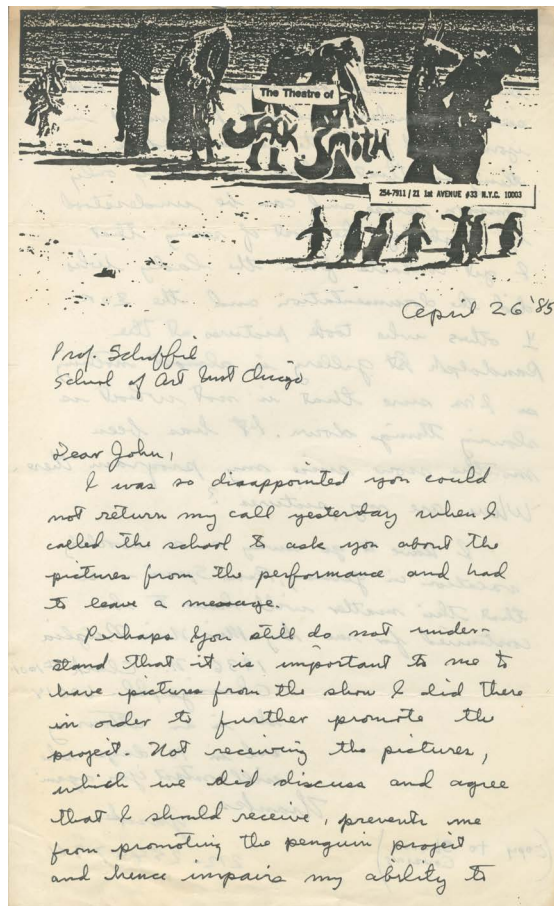 The Theatre of
JACK SMITH
254-7911 / 21 1st AVENUE #33 N.Y.C. 10003
April 26 '85
Prof. Schiffil
School of Art Inst Chicago
Dear John,
I was so disappointed you could
not return my call yesterday when I
called the school to ask you about the
pictures from the performance and had
to leave a message.
Perhaps you still do not under-
stand that it is important to me to
have pictures from the show I did there
in order to further promote the
project. Not receiving the pictures,
which we did discuss and agree
that I should receive, prevents me
from promoting the penguin project
and hence impairs my ability to